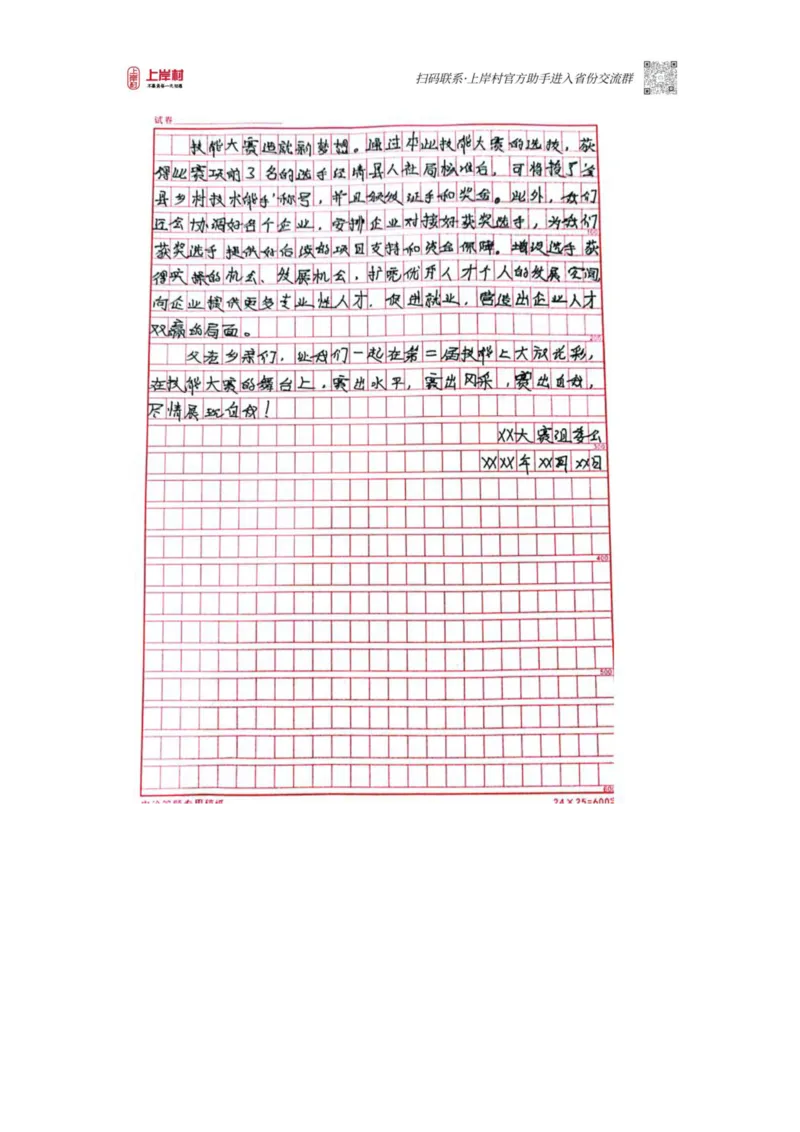 上岸村
不最良体一代知道
扫码联系·上岸村官方助手进入省份交流群
试卷
技能大赛造就新梦想。通过本业技能大赛的选拔,获
得比赛项前3名的选手经请县人社局核准后,可将授予"全
县乡村技术能手"称号,并且颁发证书和奖金。此外,我们
还会协调好各个企业,安排企业对接好获奖选手,为我们
100
获奖选手提供好后续的项目支持和资金保障。增设选手获
得实操的机会、发展机会,扩宽优秀人才个人的发展空间,
向企业提供更多专业性人才,促进就业,营造出企业人才
双赢的局面。
200
父老乡亲们,让我们一起在第二届技能上大放光彩,
在技能大赛的舞台上,赛出水平,赛出风采,赛出自我,
尽情展现自我!
XX大赛组委会
300
XXXX年XX月XX日
400
500
600
24×25=600